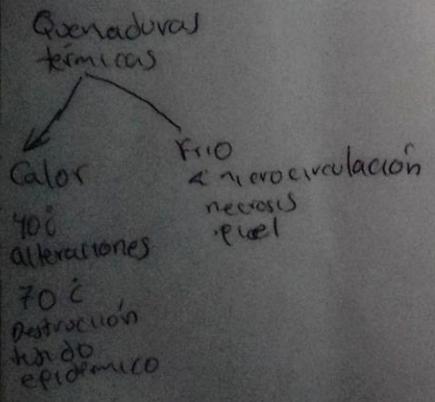 Quenaduras
térmicas
Calor
40°c
alteraciones
70°c
Destrucción
tejido
epidémico
Frio
microcirculación
necrosis
piel